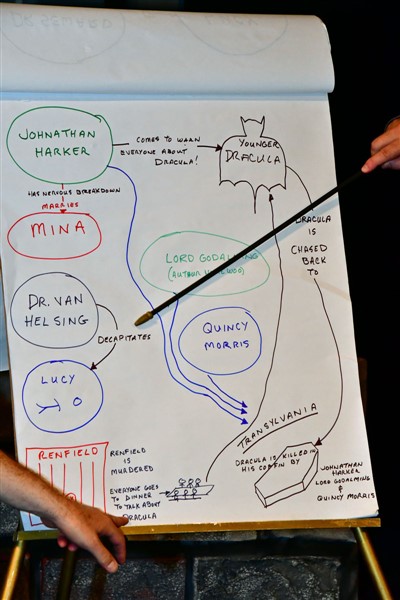 JOHNATHAN
HARKER
COMES TO WARN
EVERYONE ABOUT
DRACULA!
YOUNGER
DRACULA
HAS NERVOUS BREAKDOWN
MARRIES
MINA
DRACULA
IS
CHASED
BACK
TO
LORD GODALMING
DR. VAN
HELSING
DECAPITATES
QUINCY
MORRIS
LUCY
TRANSYLVANIA
RENFIELD
RENFIELD
IS
MURDERED
EVERYONE GOES
TO DINNER
TO TALK ABOUT
DRACULA
DRACULA IS KILLED IN
HIS COFFIN BY
JOHNATHAN
HARKER
LORD GODALMING
&
QUINCY MORRIS